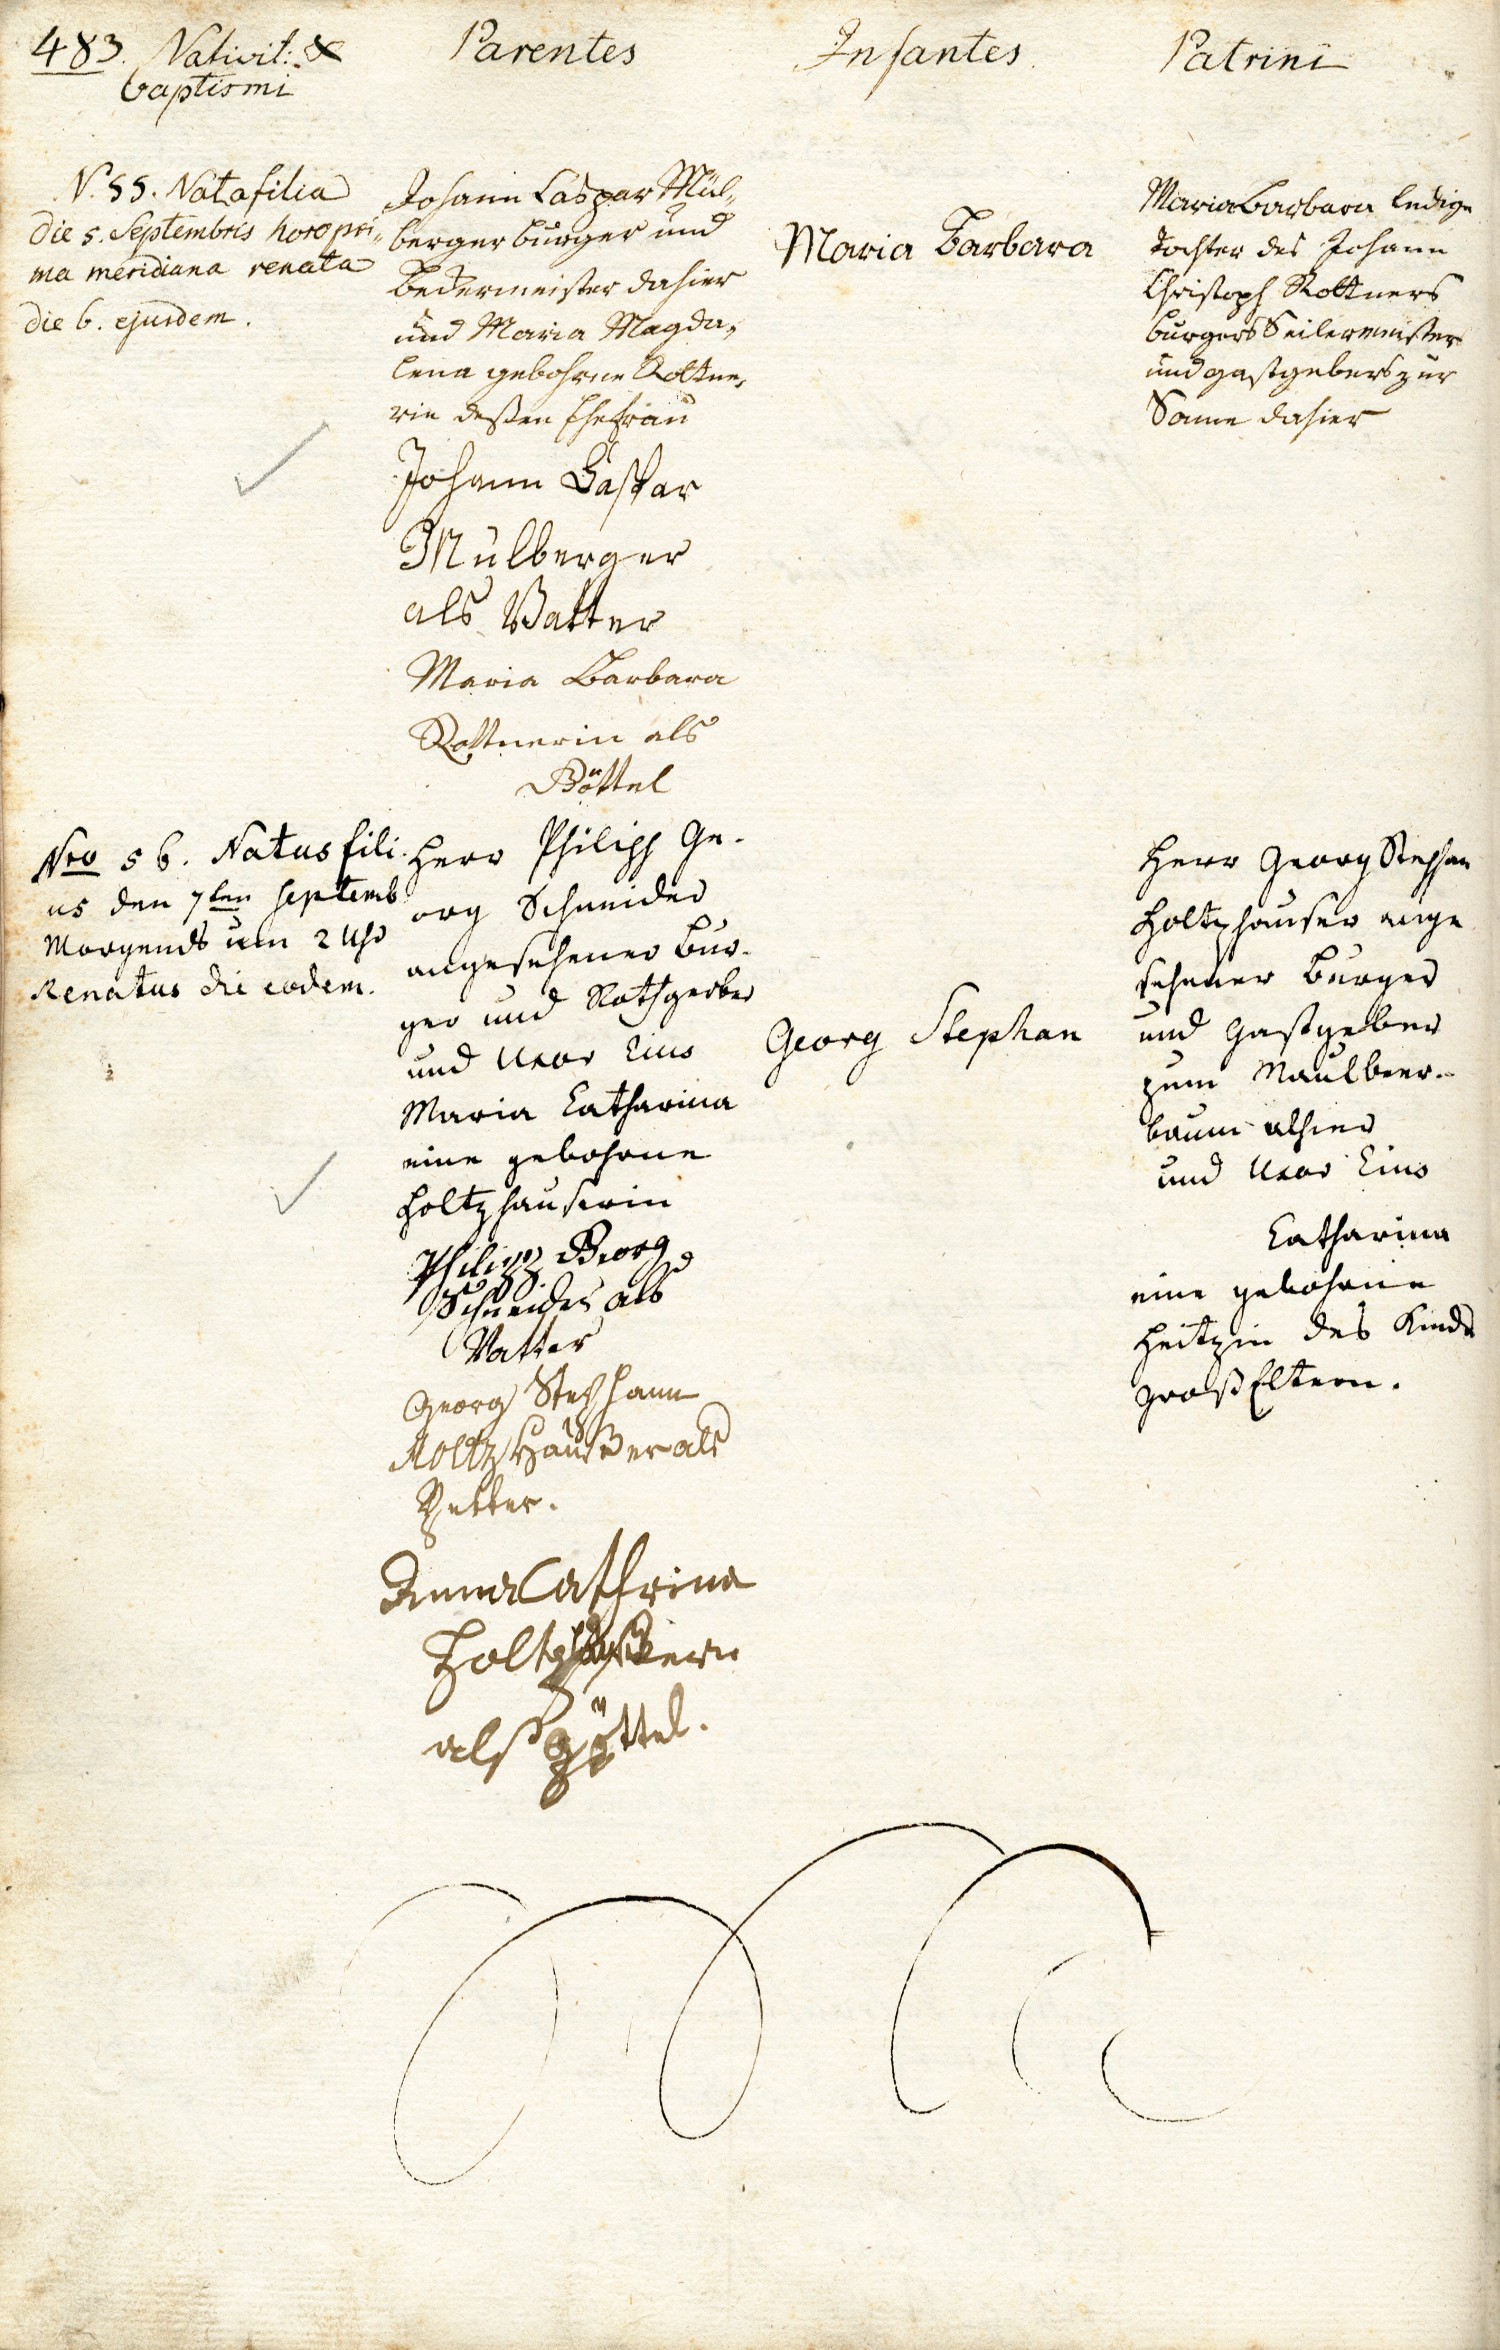 483. Nativit: &
baptismi
Parentes
Infantes
Patrini
N. 55. Nata filia
die 5. Septembris hora pri„
ma meridiana renata
die 6. ejusdem.
Johann Caspar Mül„
berger burger und
Bedermeister dahier
und Maria Magda„
lena gebohrne Rottne„
rin deßen Ehefrau
Johann Caspar
Mülberger
als Vatter
Maria Barbara
Rottnerin als
Göttel
Maria Barbara
Maria Barbara ledige
Tochter des Johann
Christoph Rottners
burgers Seilermeisters
und gastgebers zur
dahier
Nro 56. Natus fili
us den 7ten Septemb
Morgends um 2 Uhr
Renatus die eodem.
Herr Philipp Ge-
org Schneider
angesehener bur-
ger und Rothgerber
und Uxor Eius
Maria Catharina
eine gebohrne
Holtzhauserin
Philipp Georg
Schneider als
Vatter
Georg Stephann
Holtzhaußer als
Petter.
Anna Cathrina
als göttel.
Georg Stephan
Herr Georg Stephan
Holtzhauser ange
sehener burger
und Gastgeber
zum Maulbeer-
baum alhier
und Uxor Eius
Catharina
eine gebohrne
Heitzin des Kinds
groß Eltern.